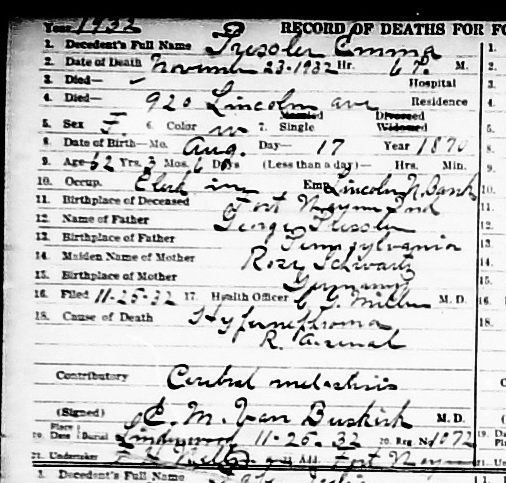 Year 1932 RECORD OF DEATHS FOR FO
1. Decedent's Full Name Pressler Emma
2. Date of Death November 23-1932 Hr. 6 P. M.
3. Died— Hospital
4. Died— 920 Lincoln ave Residence
5. Sex F. 6. Color w 7. Single Married Widowed Divorced
8. Date of Birth—Mo. Aug. Day— 17 Year 1870
9. Age 62 Yrs. 3 Mos. 6 Days (Less than a day)— Hrs. Min.
10. Occup. Clerk in Emp Lincoln N. Bank
11. Birthplace of Deceased Fort Wayne Ind
12. Name of Father George Pressler
13. Birthplace of Father Pennsylvania
14. Maiden Name of Mother Rosy Schwartz
15. Birthplace of Mother Germany
16. Filed 11-25-32 17. Health Officer Miller M. D.
18. Cause of Death Hypernephroma
R.
Contributory Cerebral metastasis
(Signed) E. M. Van Buskirk M. D.
19. Place Date Burial Lindenwood 11-25-32 20. Reg. No 1072
21. Undertaker Add. Fort
2. Decedent's Full Name